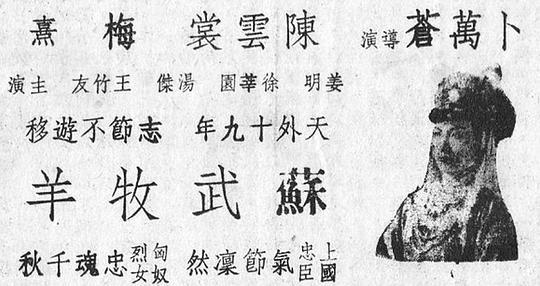 卜萬蒼導演
陳雲裳 梅熹
姜明 徐莘園 湯傑 王竹友 主演
天外十九年 志節不遊移
蘇武牧羊
上國忠臣氣節凜然 匈奴烈女忠魂千秋